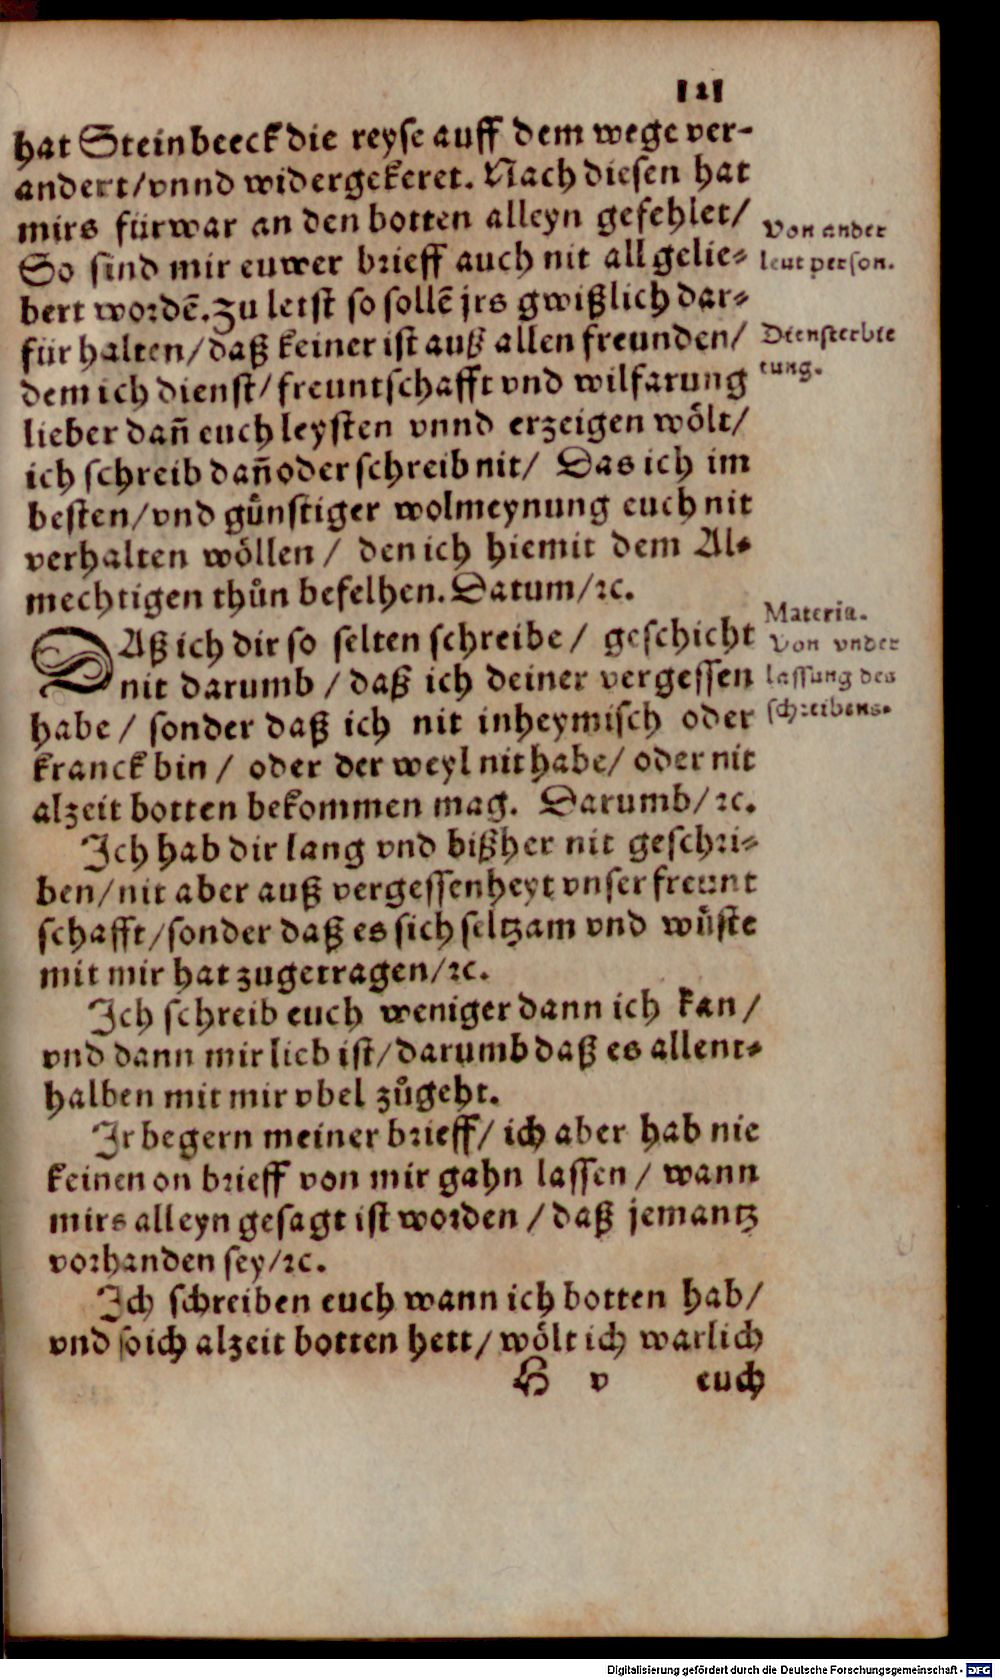 121
hat Steinbeeck die reyse auff dem wege ver-
andert/vnnd widergekeret. Nach diesen hat
mirs fürwar an den botten alleyn gefehlet/
Von ander
leut person.
So sind mir euwer brieff auch nit all gelie-
bert wordẽ. Zu letst so sollẽ jrs gwißlich dar-
für halten/daß keiner ist auß allen freunden/
Diensterbie
tung.
dem ich dienst/freuntschafft vnd wilfarung
lieber dañ euch leysten vnnd erzeigen wölt/
ich schreib dañ oder schreib nit/ Das ich im
besten/vnd gůnstiger wolmeynung euch nit
verhalten wöllen/ den ich hiemit dem Al-
mechtigen thůn befelhen. Datum/ꝛc.
DAß ich dir so selten schreibe/ geschicht
Materia.
Von vnder
lassung des
schreibens.
nit darumb/daß ich deiner vergessen
habe/ sonder daß ich nit inheymisch oder
kranck bin/ oder der weyl nit habe/ oder nit
alzeit botten bekommen mag. Darumb/ꝛc.
Ich hab dir lang vnd bißher nit geschri-
ben/nit aber auß vergessenheyt vnser freunt
schafft/sonder daß es sich seltzam vnd wůste
mit mir hat zugetragen/ꝛc.
Ich schreib euch weniger dann ich kan/
vnd dann mir lieb ist/darumb daß es allent-
halben mit mir vbel zůgeht.
Ir begern meiner brieff/ ich aber hab nie
keinen on brieff von mir gahn lassen/ wann
mirs alleyn gesagt ist worden/daß jemantz
vorhanden sey/ꝛc.
Ich schreiben euch wann ich botten hab/
vnd so ich alzeit botten hett/wölt ich warlich
H v euch
Digitalisierung gefördert durch die Deutsche Forschungsgemeinschaft - DFG